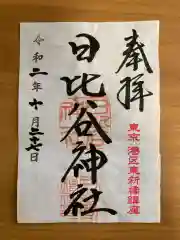 奉拝
東京港区東新橋鎮座
日比谷神社
令和二年十月二十七日